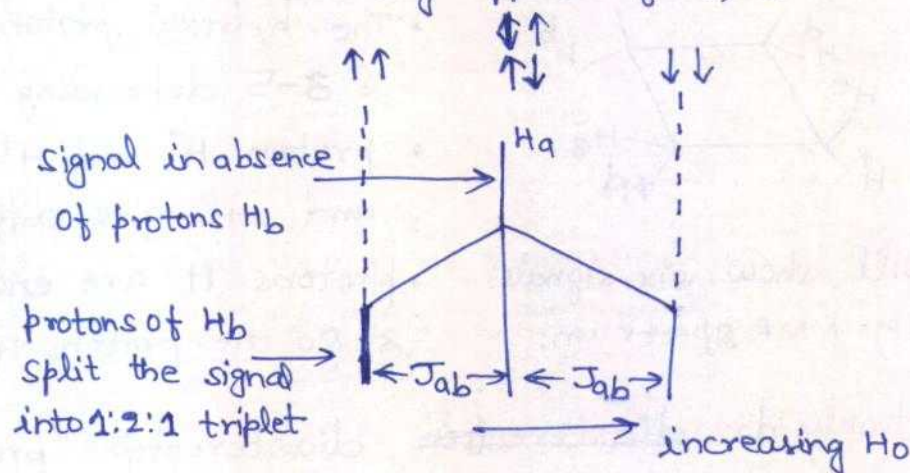 ↓↑
↑↑ ↑↓ ↓↓
Ha
signal in absence
of protons Hb
protons of Hb
split the signal
into 1:2:1 triplet
←Jab→ ←Jab→
increasing Ho